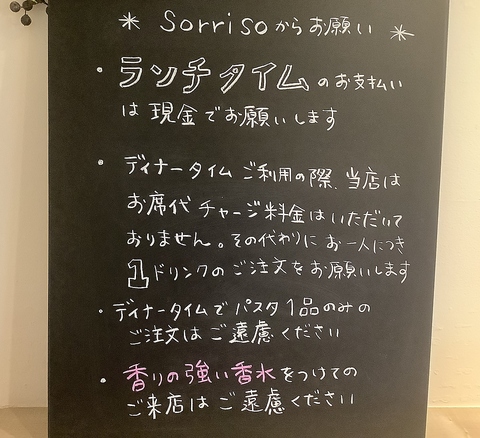 ＊ Sorrisoからお願い ＊
・ランチタイムのお支払い
は現金でお願いします
・ディナータイムご利用の際、当店は
お席代チャージ料金はいただいて
おりません。その代わりにお一人につき
1ドリンクのご注文をお願いします
・ディナータイムでパスタ1品のみの
ご注文はご遠慮ください
・香りの強い香水をつけての
ご来店はご遠慮ください